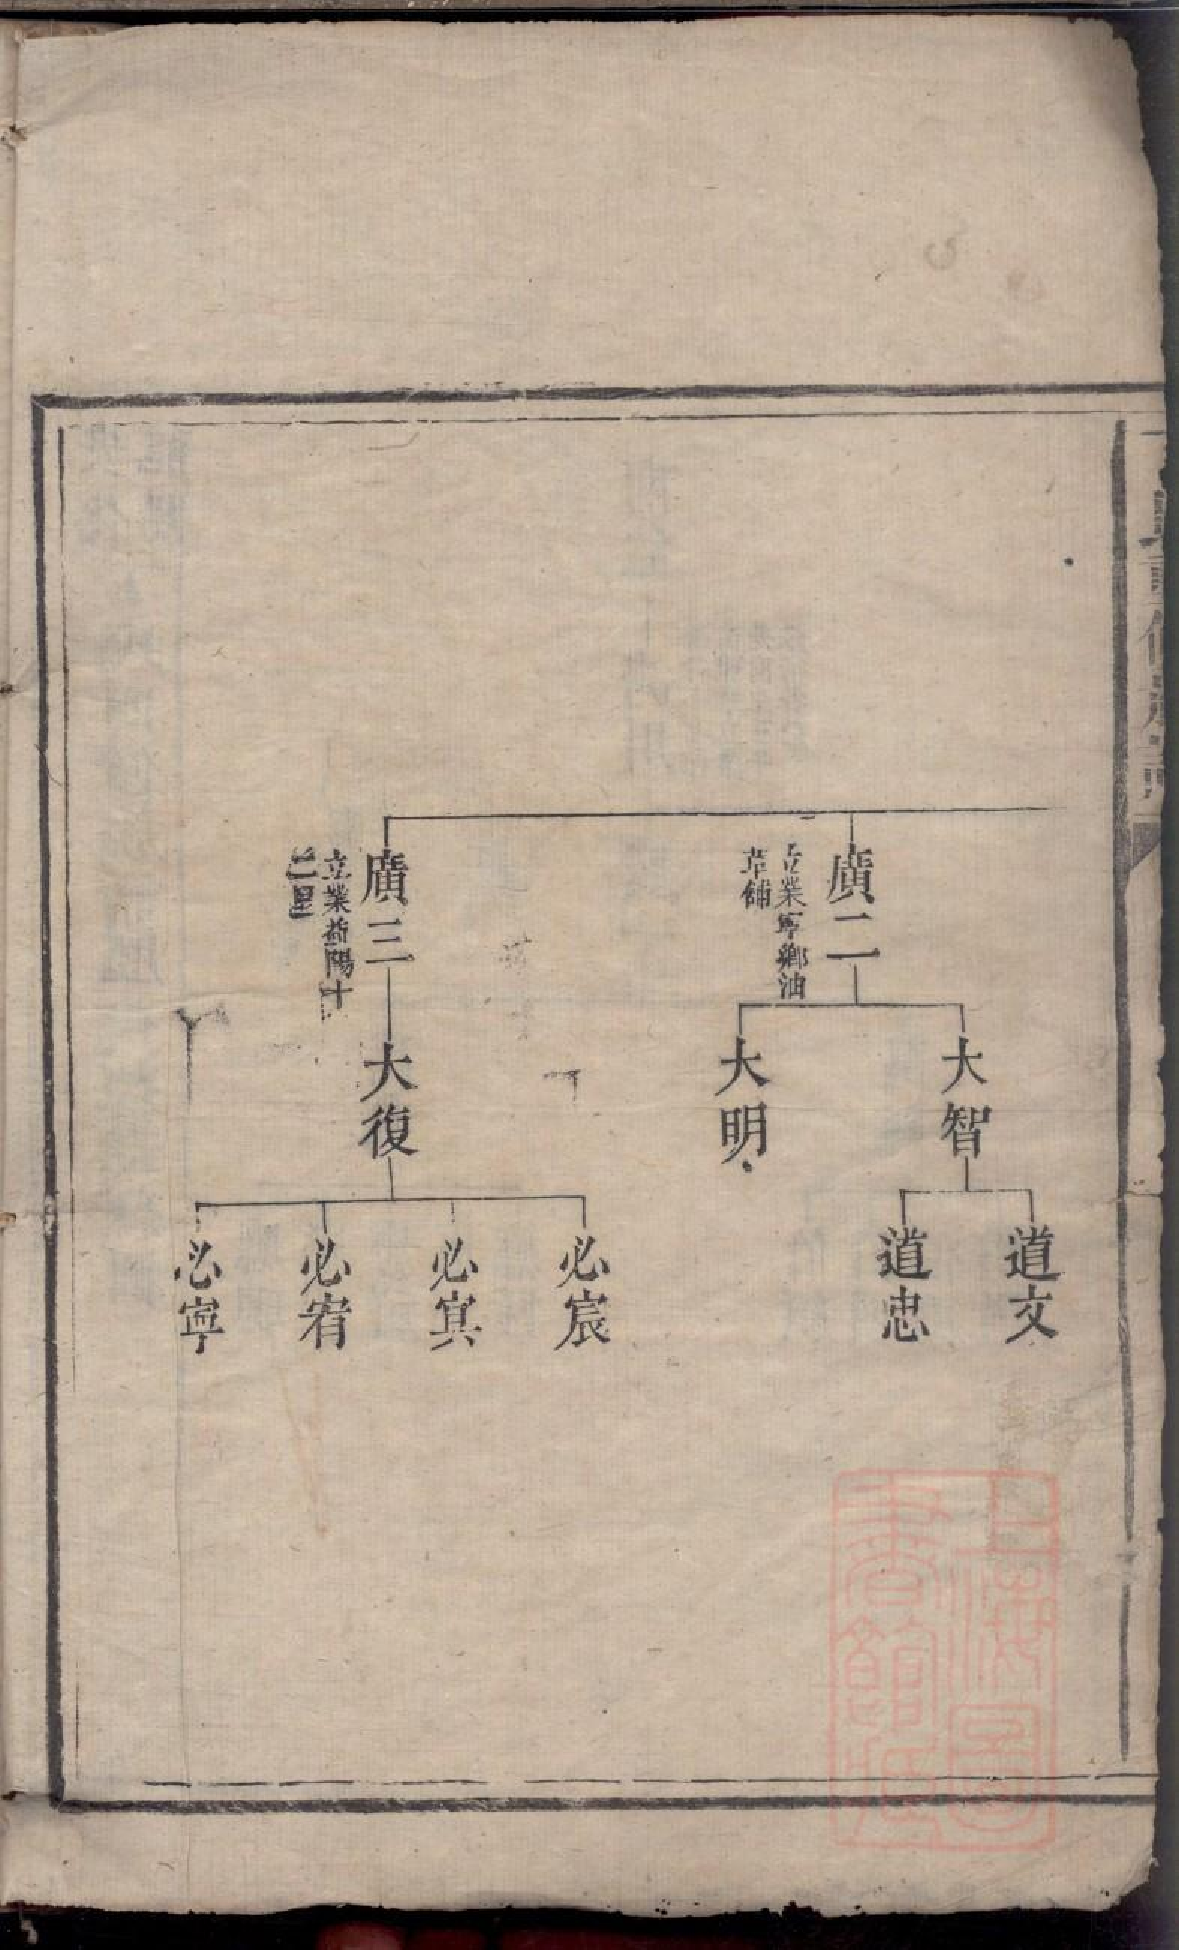 廣二
立業寧鄉油
草鋪
大智
道文
道忠
大明
廣三
立業益陽十
二里
大復
必宸
必寘
必宥
必寧
上海圖
書館藏